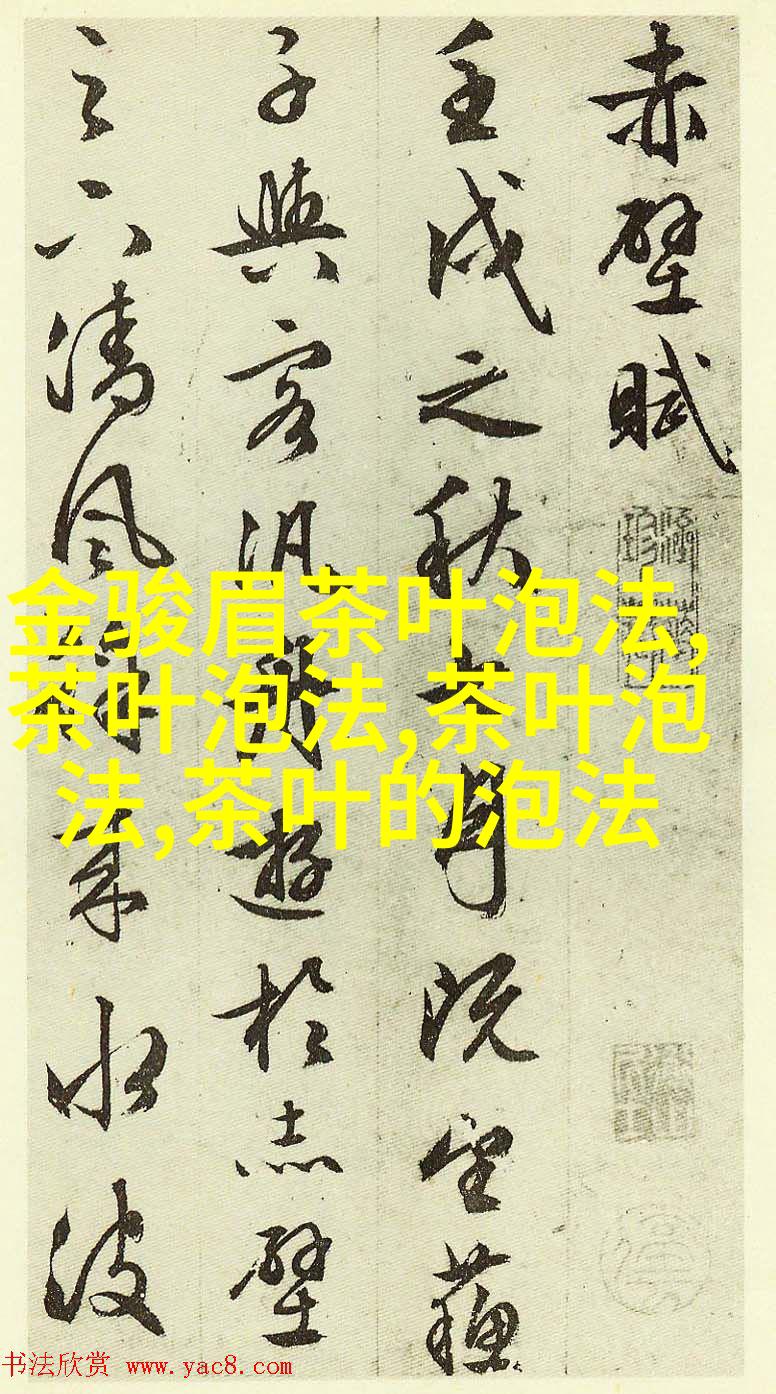 赤壁賦
壬戌之秋七月既望蘇
子與客汎舟遊於赤壁
之下清風徐來水波
金骏眉茶叶泡法,
茶叶泡法,茶叶泡
法,茶叶的泡法
书法欣赏 www.yac8.com